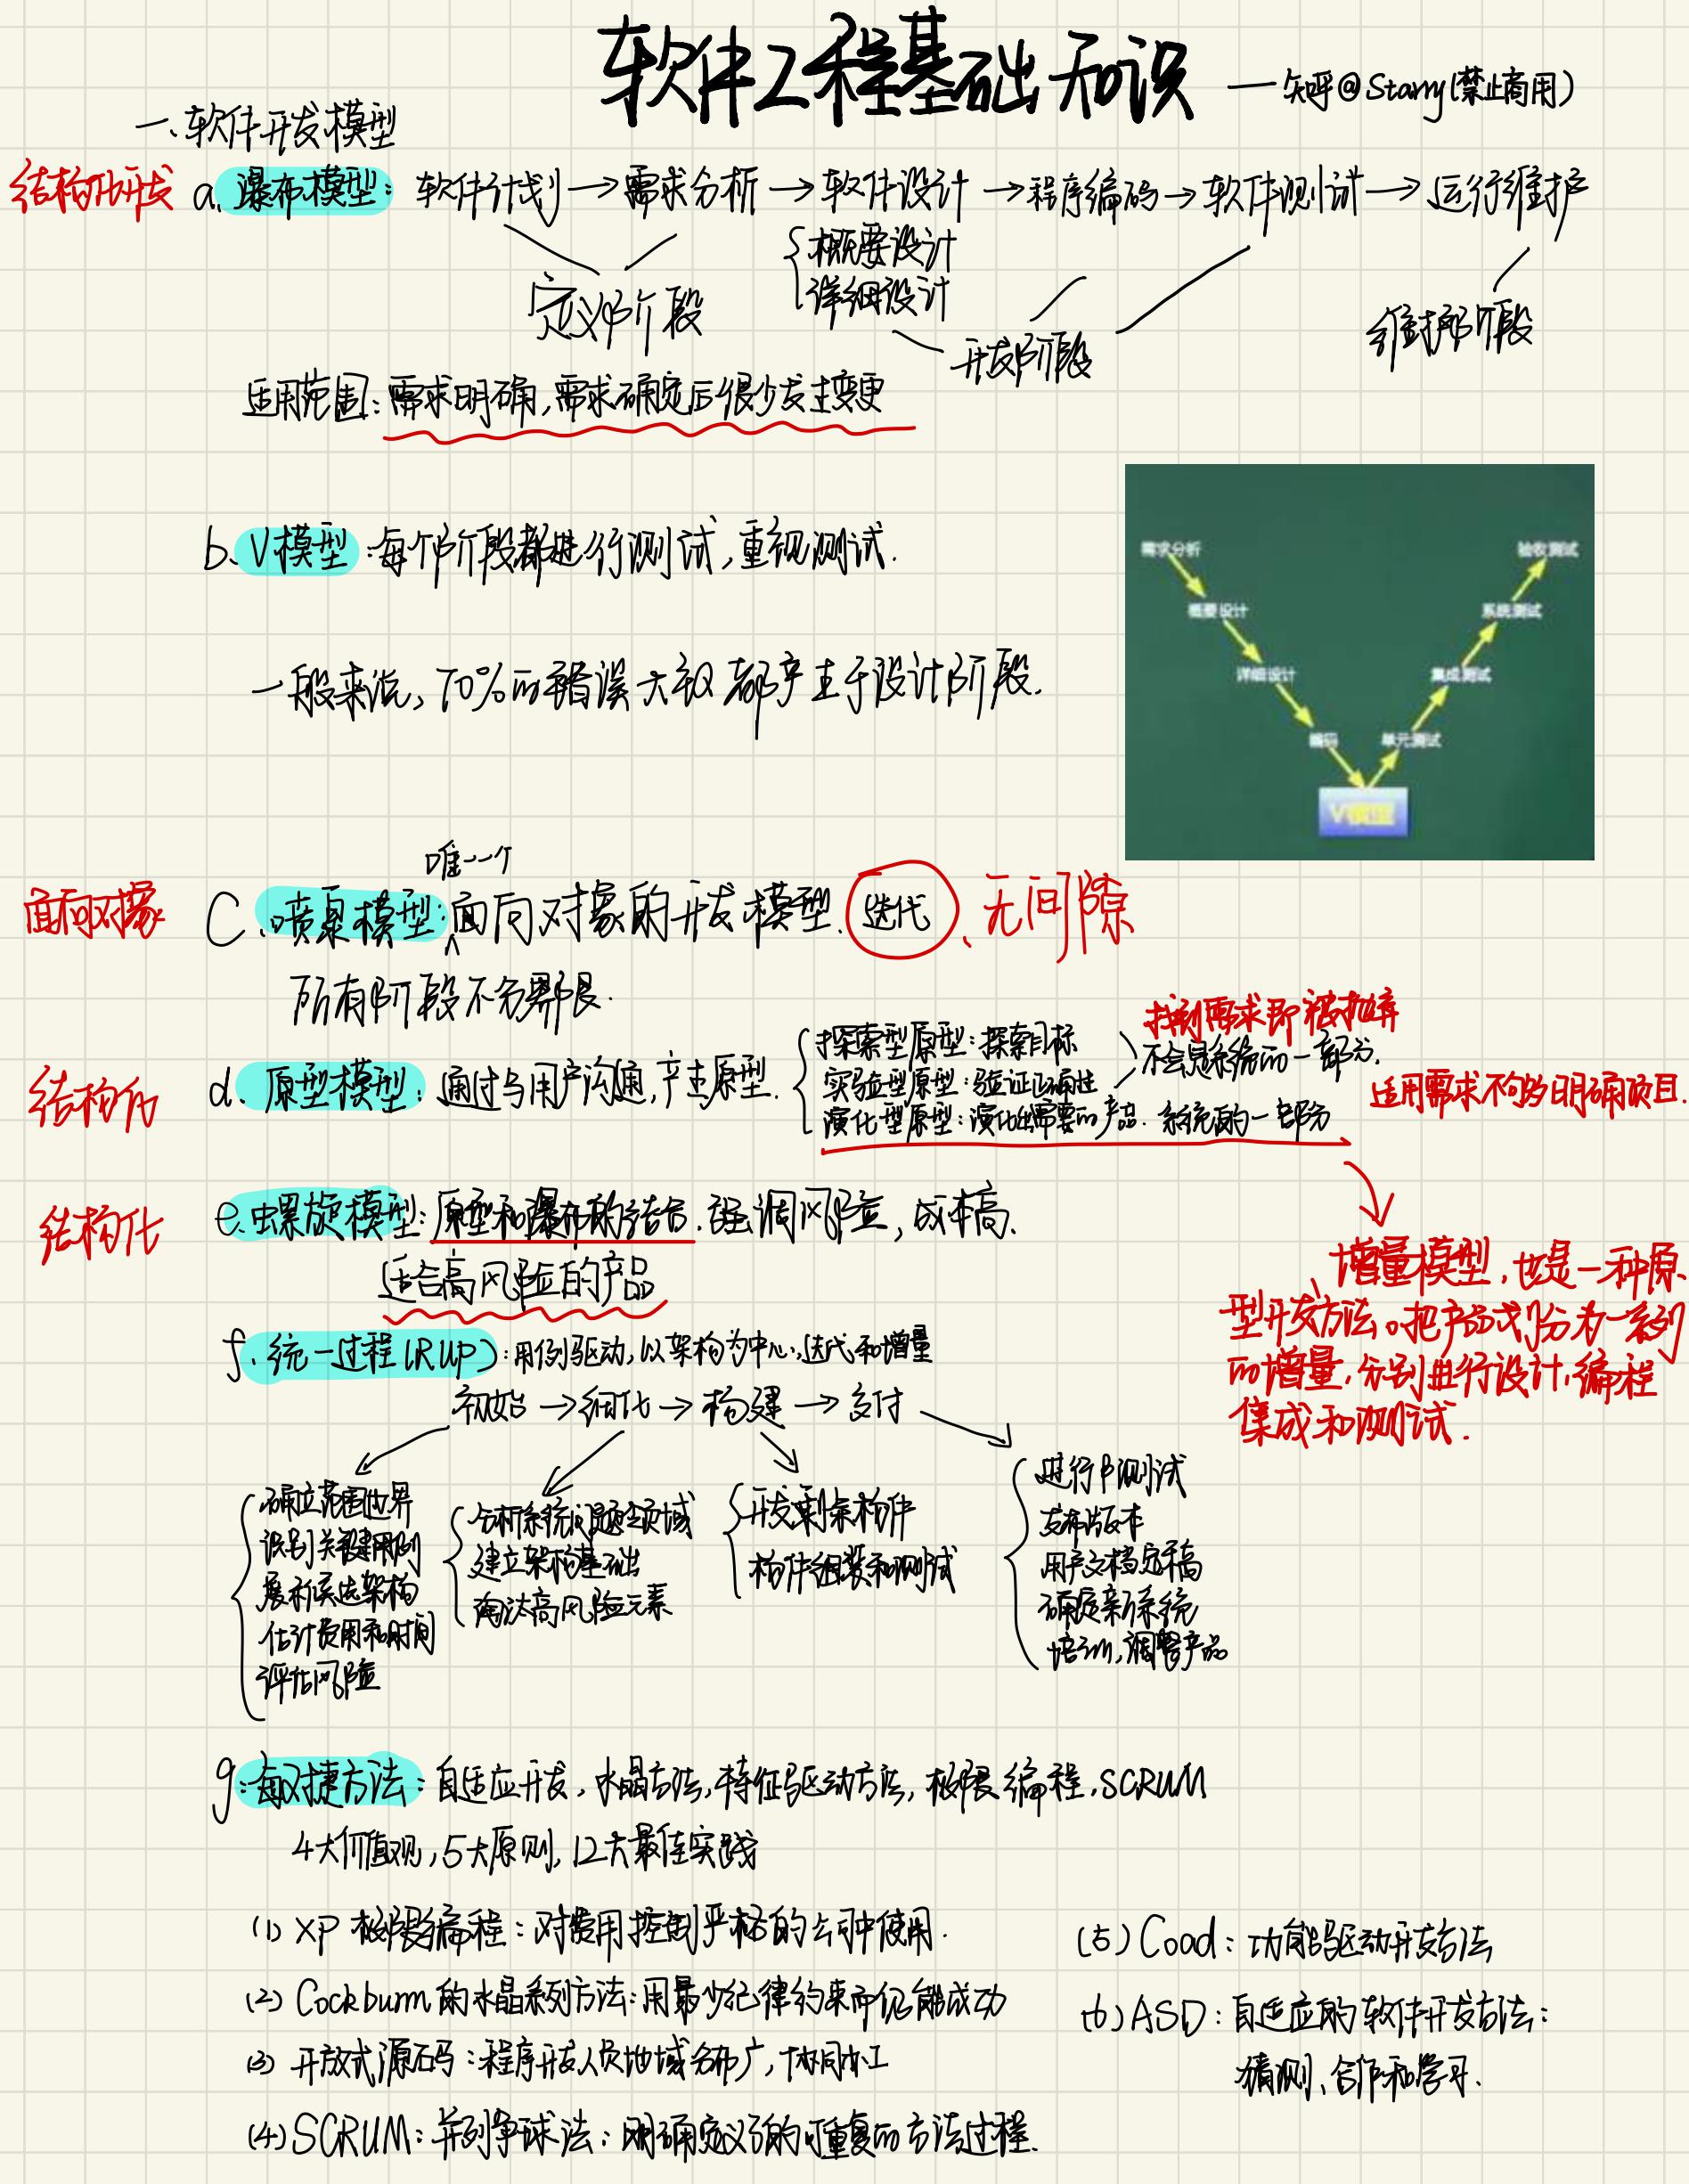 软件工程基础知识 ——知乎@Starry(禁止商用)
一、软件开发模型
结构化开发 a.瀑布模型: 软件计划→需求分析→软件设计→程序编码→软件测试→运行维护
{概要设计
详细设计
定义阶段
开发阶段
维护阶段
适用范围:需求明确,需求确定后很少发生变更
b.V模型:每个阶段都进行测试,重视测试.
需求分析 验收测试
概要设计 系统测试
详细设计 集成测试
编码 单元测试
V模型
一般来说,70%的错误大致都产生于设计阶段.
唯一一个
面向对象 C.喷泉模型:面向对象的开发模型.迭代、无间隙
所有阶段不分界限.
找到需求即被抛弃
结构的 d.原型模型:通过与用户沟通,产生原型.
{探索型原型:探索目标
实验型原型:验证正确性
不会是系统的一部分.
演化型原型:演化出需要的产品.系统的一部分
适用需求不够明确项目.
结构化 e.螺旋模型:原型和瀑布的结合.强调风险,成本高.
适合高风险的产品
增量模型,也是一种原
型开发方法。把产品划分为一系列
的增量,分别进行设计,编程
集成和测试.
f.统一过程(RUP):用例驱动,以架构为中心,迭代和增量
初始→细化→构建→交付
确立范围世界
识别关键用例
展示系统架构
估计费用和时间
评估风险
分析系统问题领域
建立架构基础
淘汰高风险元素
开发剩余构件
构件组装和测试
进行β测试
发布版本
用户文档定稿
确定新系统
培训,调整产品
g.敏捷方法:自适应开发,水晶方法,特征驱动方法,极限编程,SCRUM
4大价值观,5大原则,12大最佳实践
(1) XP 极限编程:对费用控制严格的公司中使用.
(2) Cockburn的水晶系列方法:用最少纪律约束而仍能成功
(3) 开放式源码:程序开发人员地域分布广,协同办工
(4) SCRUM:并列争球法:明确定义了的可重复的方法过程.
(5) Coad:功能驱动开发方法
(6) ASD:自适应的软件开发方法:
猜测、合作和学习.